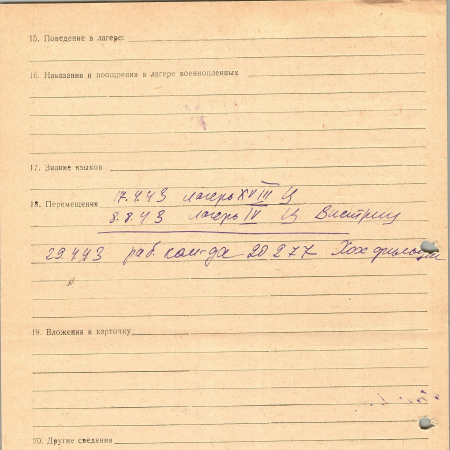 15. Поведение в лагере:
16. Наказания и поощрения в лагере военнопленных
17. Знание языков
17.4.43 лагерь XVIII Ц
18. Перемещения
8.8.43 лагерь IV Ц Вистриц
29.4.43 раб. ком-да 20277
19. Вложения в карточку
20. Другие сведения